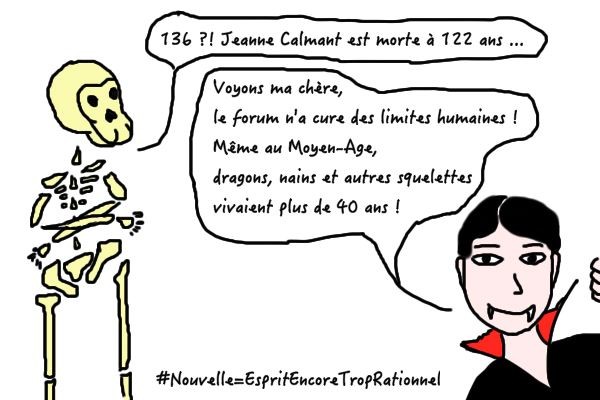 136 ?! Jeanne Calmant est morte à 122 ans ...
Voyons ma chère,
le forum n'a cure des limites humaines !
Même au Moyen-Age,
dragons, nains et autres squelettes
vivaient plus de 40 ans !
#Nouvelle=EspritEncoreTropRationnel